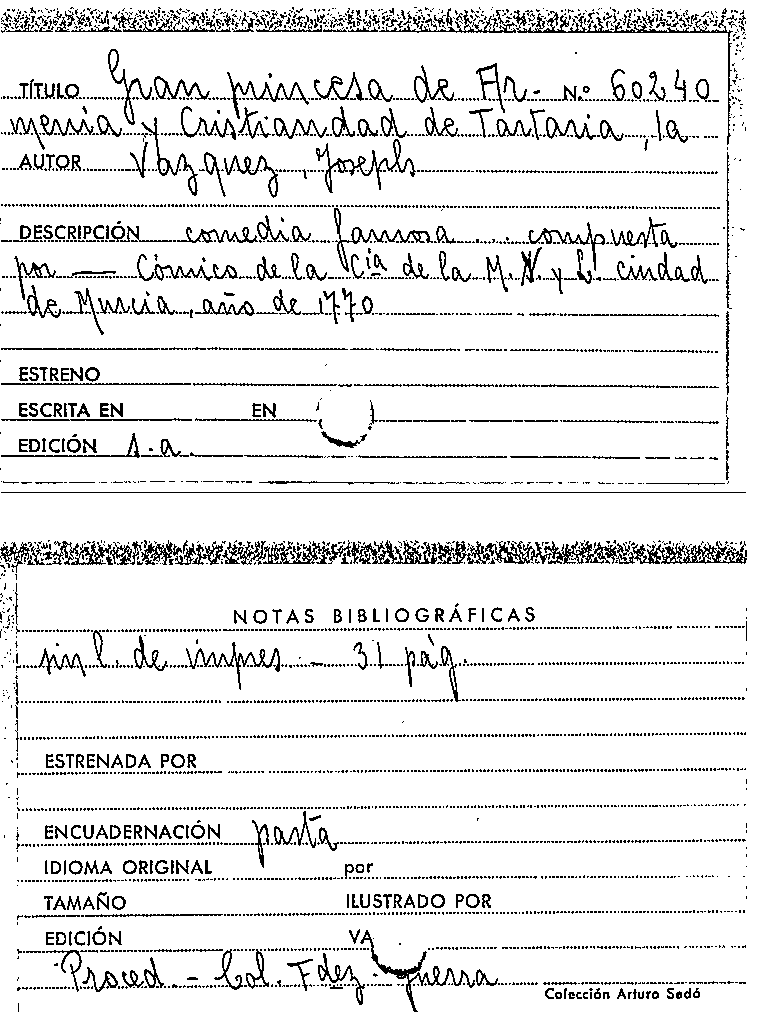 TÍTULO Gran princesa de Ar- N.º 60240
menia y Cristiandad de Tartaria, la
AUTOR Vázquez, Joseph
DESCRIPCIÓN comedia famosa... compuesta
por — Cómico de la Cía de la M. N. y L. ciudad
de Murcia, año de 1770
ESTRENO
ESCRITA EN EN
EDICIÓN s.a.
NOTAS BIBLIOGRÁFICAS
sin l. de impres - 31 pág.
ESTRENADA POR
ENCUADERNACIÓN pasta
IDIOMA ORIGINAL por
TAMAÑO ILUSTRADO POR
EDICIÓN VA
Proced. - Col. Fdez. Guerra
Colección Arturo Sedó